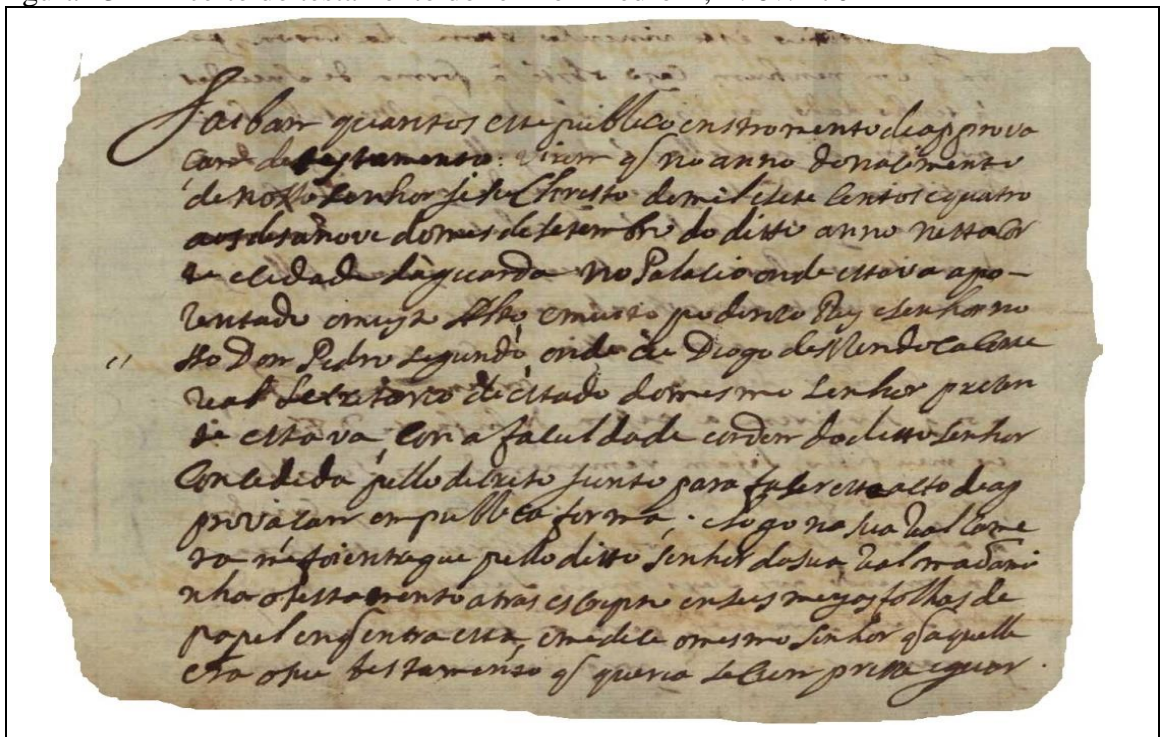 Saibam quantos este publico enstromento de approva
cam de testamento virem q̃ no anno do nacimento
de nosso senhor Jesu Christo de mil e sete centos e quatro
aos desanove do mes de setembro do ditto anno nesta cor
te e cidade da guarda no Palacio onde estava apo-
zentado o muyto Alto e muito poderozo Rey e senhor no
sso Dom Pedro segundo onde eu Diogo de Mendoça Corte
real secretario de estado do mesmo senhor prezen
te estava com a faculdade e ordem do ditto senhor
concedida pello decreto junto para fazer este acto de ap
provacam em publica forma. e logo na sua Real came
ra me foi entregue pello ditto senhor da sua Real mão a mi
nha o testamento atras escripto em seis meyas folhas de
papel em q̃ entra esta, e me dice o mesmo senhor q̃ aquelle
era o seu testamento q̃ queria se cumprisse e guar